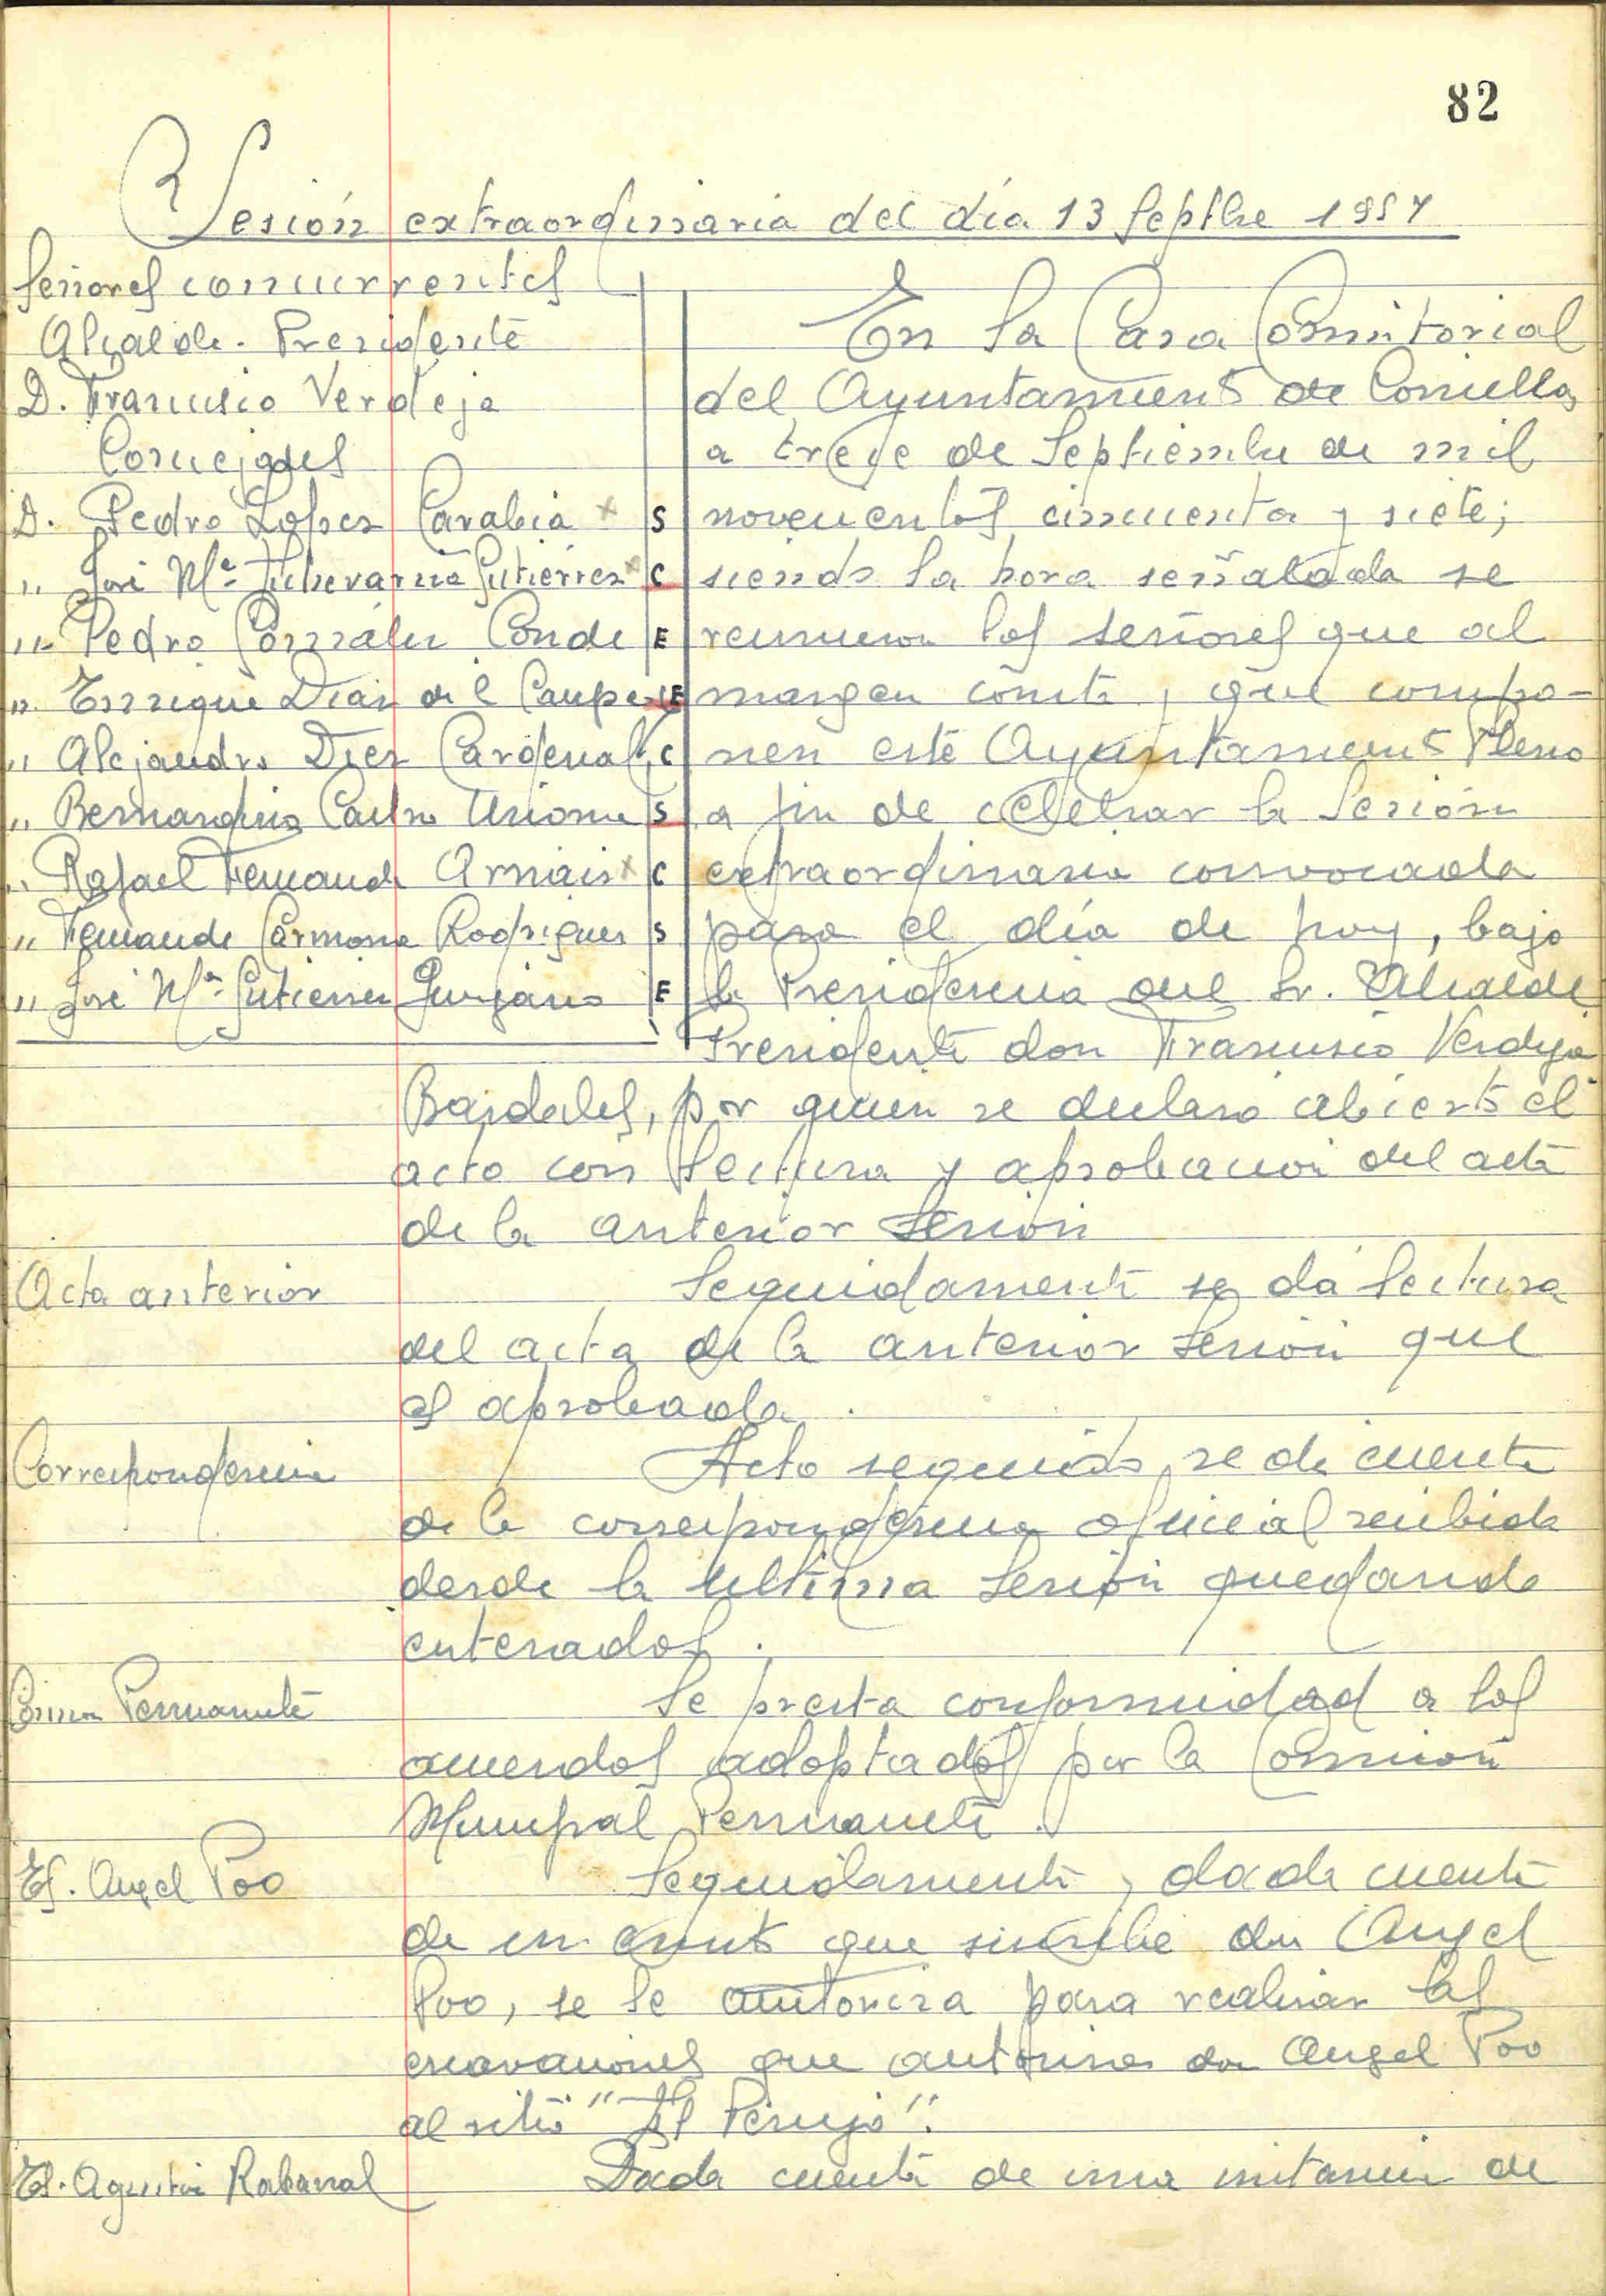 82
Sesión extraordinaria del día 13 Septbre 1957
Señores concurrentes
Alcalde-Presidente
D. Francisco Verdeja
Concejales
D. Pedro Lopez Carabia x S
" José Mª Gutierrez x C
" Pedro González Conde E
" Enrique Diaz del Campo E
" Alejandro Diez Cardenal C
" Bernardino Castro S
" Rafael Fernandez Arnaiz x C
" Fernando Carmona Rodriguez S
" José Mª Gutierrez E
En la Casa Consistorial
del Ayuntamiento de Comillas
a trece de Septiembre de mil
novecientos cincuenta y siete;
siendo la hora señalada se
reunieron los señores que al
margen consta, y que compo-
nen este Ayuntamiento Pleno
a fin de celebrar la Sesión
extraordinaria convocada
para el día de hoy, bajo
la Presidencia del Sr. Alcalde
Presidente don Francisco Verdeja
Bardales, por quien se declaro abierto el
acto con lectura y aprobación del acta
de la anterior sesión
Acta anterior
Seguidamente se dá lectura
del acta de la anterior sesión que
es aprobada.
Correspondencia
Acto seguido, se da cuenta
de la correspondencia oficial recibida
desde la ultima sesión quedando
enterados.
Comon Permanente
Se presta conformidad a los
acuerdos adoptados por la Comisión
Municipal Permanente.
Es. Angel Poo
Seguidamente, dada cuenta
de un escrito que suscribe don Angel
Poo, se le autoriza para realizar las
excavaciones que autoriza don Angel Poo
al sitio "El
Es. Agustin Rabanal
Dada cuenta de una instancia de